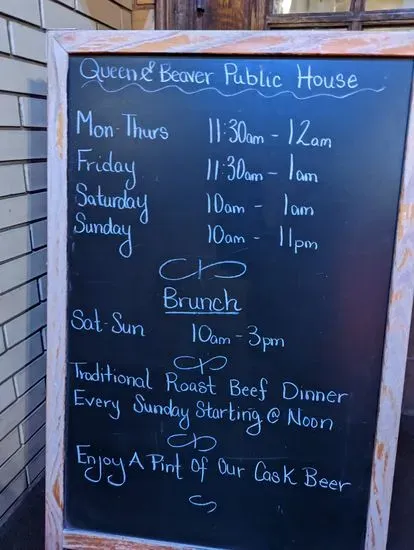 Queen & Beaver Public House
Mon-Thurs 11:30am - 12am
Friday 11:30am - 1am
Saturday 10am - 1am
Sunday 10am - 11pm
Brunch
Sat-Sun 10am - 3pm
Traditional Roast Beef Dinner
Every Sunday Starting @ Noon
Enjoy A Pint Of Our Cask Beer